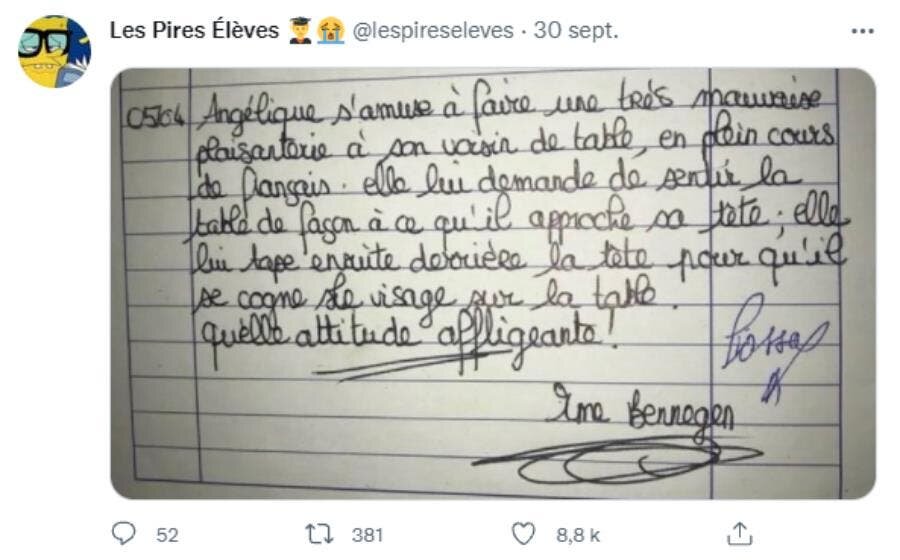 Les Pires Élèves 👨‍🎓😭 @lespireseleves · 30 sept.
05/04 Angélique s'amuse à faire une très mauvaise
plaisanterie à son voisin de table, en plein cours
de français. elle lui demande de sentir la
table de façon à ce qu'il approche sa tête ; elle
lui tape ensuite derrière la tête pour qu'il
se cogne le visage sur la table.
quelle attitude affligeante !
Mme Bennegen
52 381 8,8 k